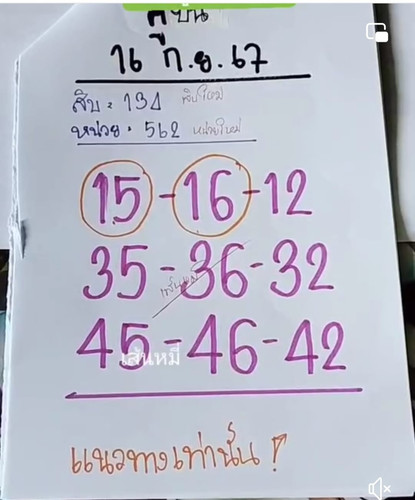 คู่บน
16 ก.ย. 67
สิบ = 134 สิบใหม่
หน่วย = 562 หน่วยใหม่
15-16-12
35-36-32
45-46-42
เส้นหมี่
แนวทางเท่านั้น !